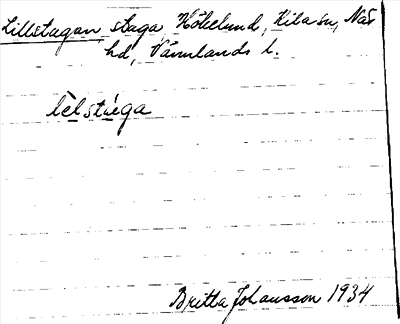 Lillstagan staga Hökelund, Kila sn, Näs
hd, Värmlands l.
lèlstàega
Britta Johansson 1934